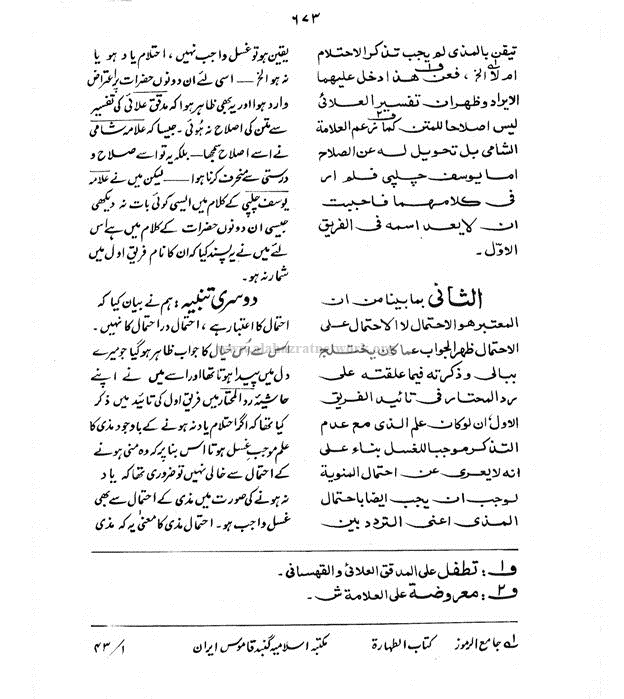 ٦٧٣
تيقن بالمذی لم يجب تذكر الاحتلام
ام لا الخ ، فعن هذا دخل عليهما
الايراد وظهران تفسير العلائی
ليس اصلاحا للمتن كما زعم العلامة
الشامی بل تحويل له عن الصلاح
اما يوسف چلپی فلم ار
فی كلامهما فاحببت
ان لا يعد اسمه فی الفريق
الاوّل ۔
الثانی بما بينا من ان
المعتبر هو الاحتمال لا الاحتمال على
الاحتمال ظهر الجواب عما كان يختلج
ببالی وذكرته فيما علقته على
رد المحتار فی تائيد الفريق
الاول ان لو كان علم الذی مع عدم
التذكر موجبا للغسل بناء على
انه لا يعری عن احتمال المنوية
لوجب ان يجب ايضا باحتمال
المذی اعنی التردد بين
یقین ہو تو غسل واجب نہیں ، احتلام یاد ہو یا
نہ ہو الخ — اسی لئے ان دونوں حضرات پر اعتراض
وارد ہوا اور یہ بھی ظاہر ہوا کہ مدقق علائی کی تفسیر
سے متن کی اصلاح نہ ہوئی ۔ جیسا کہ علامہ شامی
نے اسے اصلاح سمجھا — بلکہ یہ تو اسے صلاح و
درستی سے منحرف کرنا ہوا — لیکن میں نے علامہ
یوسف چلپی کے کلام میں ایسی کوئی بات نہ دیکھی
جیسی ان دونوں حضرات کے کلام میں ہے اس
لئے میں نے یہ پسند کیا کہ ان کا نام فریق اول میں
شمار نہ ہو ۔
دوسری تنبیہ : ہم نے بیان کیا کہ
احتمال کا اعتبار ہے ، احتمال در احتمال کا نہیں ۔
اس سے اُس خیال کا جواب ظاہر ہو گیا جو میرے
دل میں پیدا ہوتا تھا اور اسے میں نے اپنے
حاشیۂ رد المحتار میں فریق اول کی تائید میں ذکر
کیا تھا کہ اگر احتلام یاد نہ ہونے کے باوجود مذی کا
علم موجبِ غسل ہوتا اس بنا پر کہ وہ منی ہونے
کے احتمال سے خالی نہیں تو ضروری تھا کہ یاد
نہ ہونے کی صورت میں مذی کے احتمال سے بھی
غسل واجب ہو ۔ احتمال مذی کا معنٰی یہ کہ مذی
ف١ : تطفل على المدقق العلائی والقهستانی ۔
ف٢ : معروضة على العلامة ش ۔
لے جامع الرموز کتاب الطہارۃ مکتبہ اسلامیہ گنبد قاموس ایران ١/٤٣